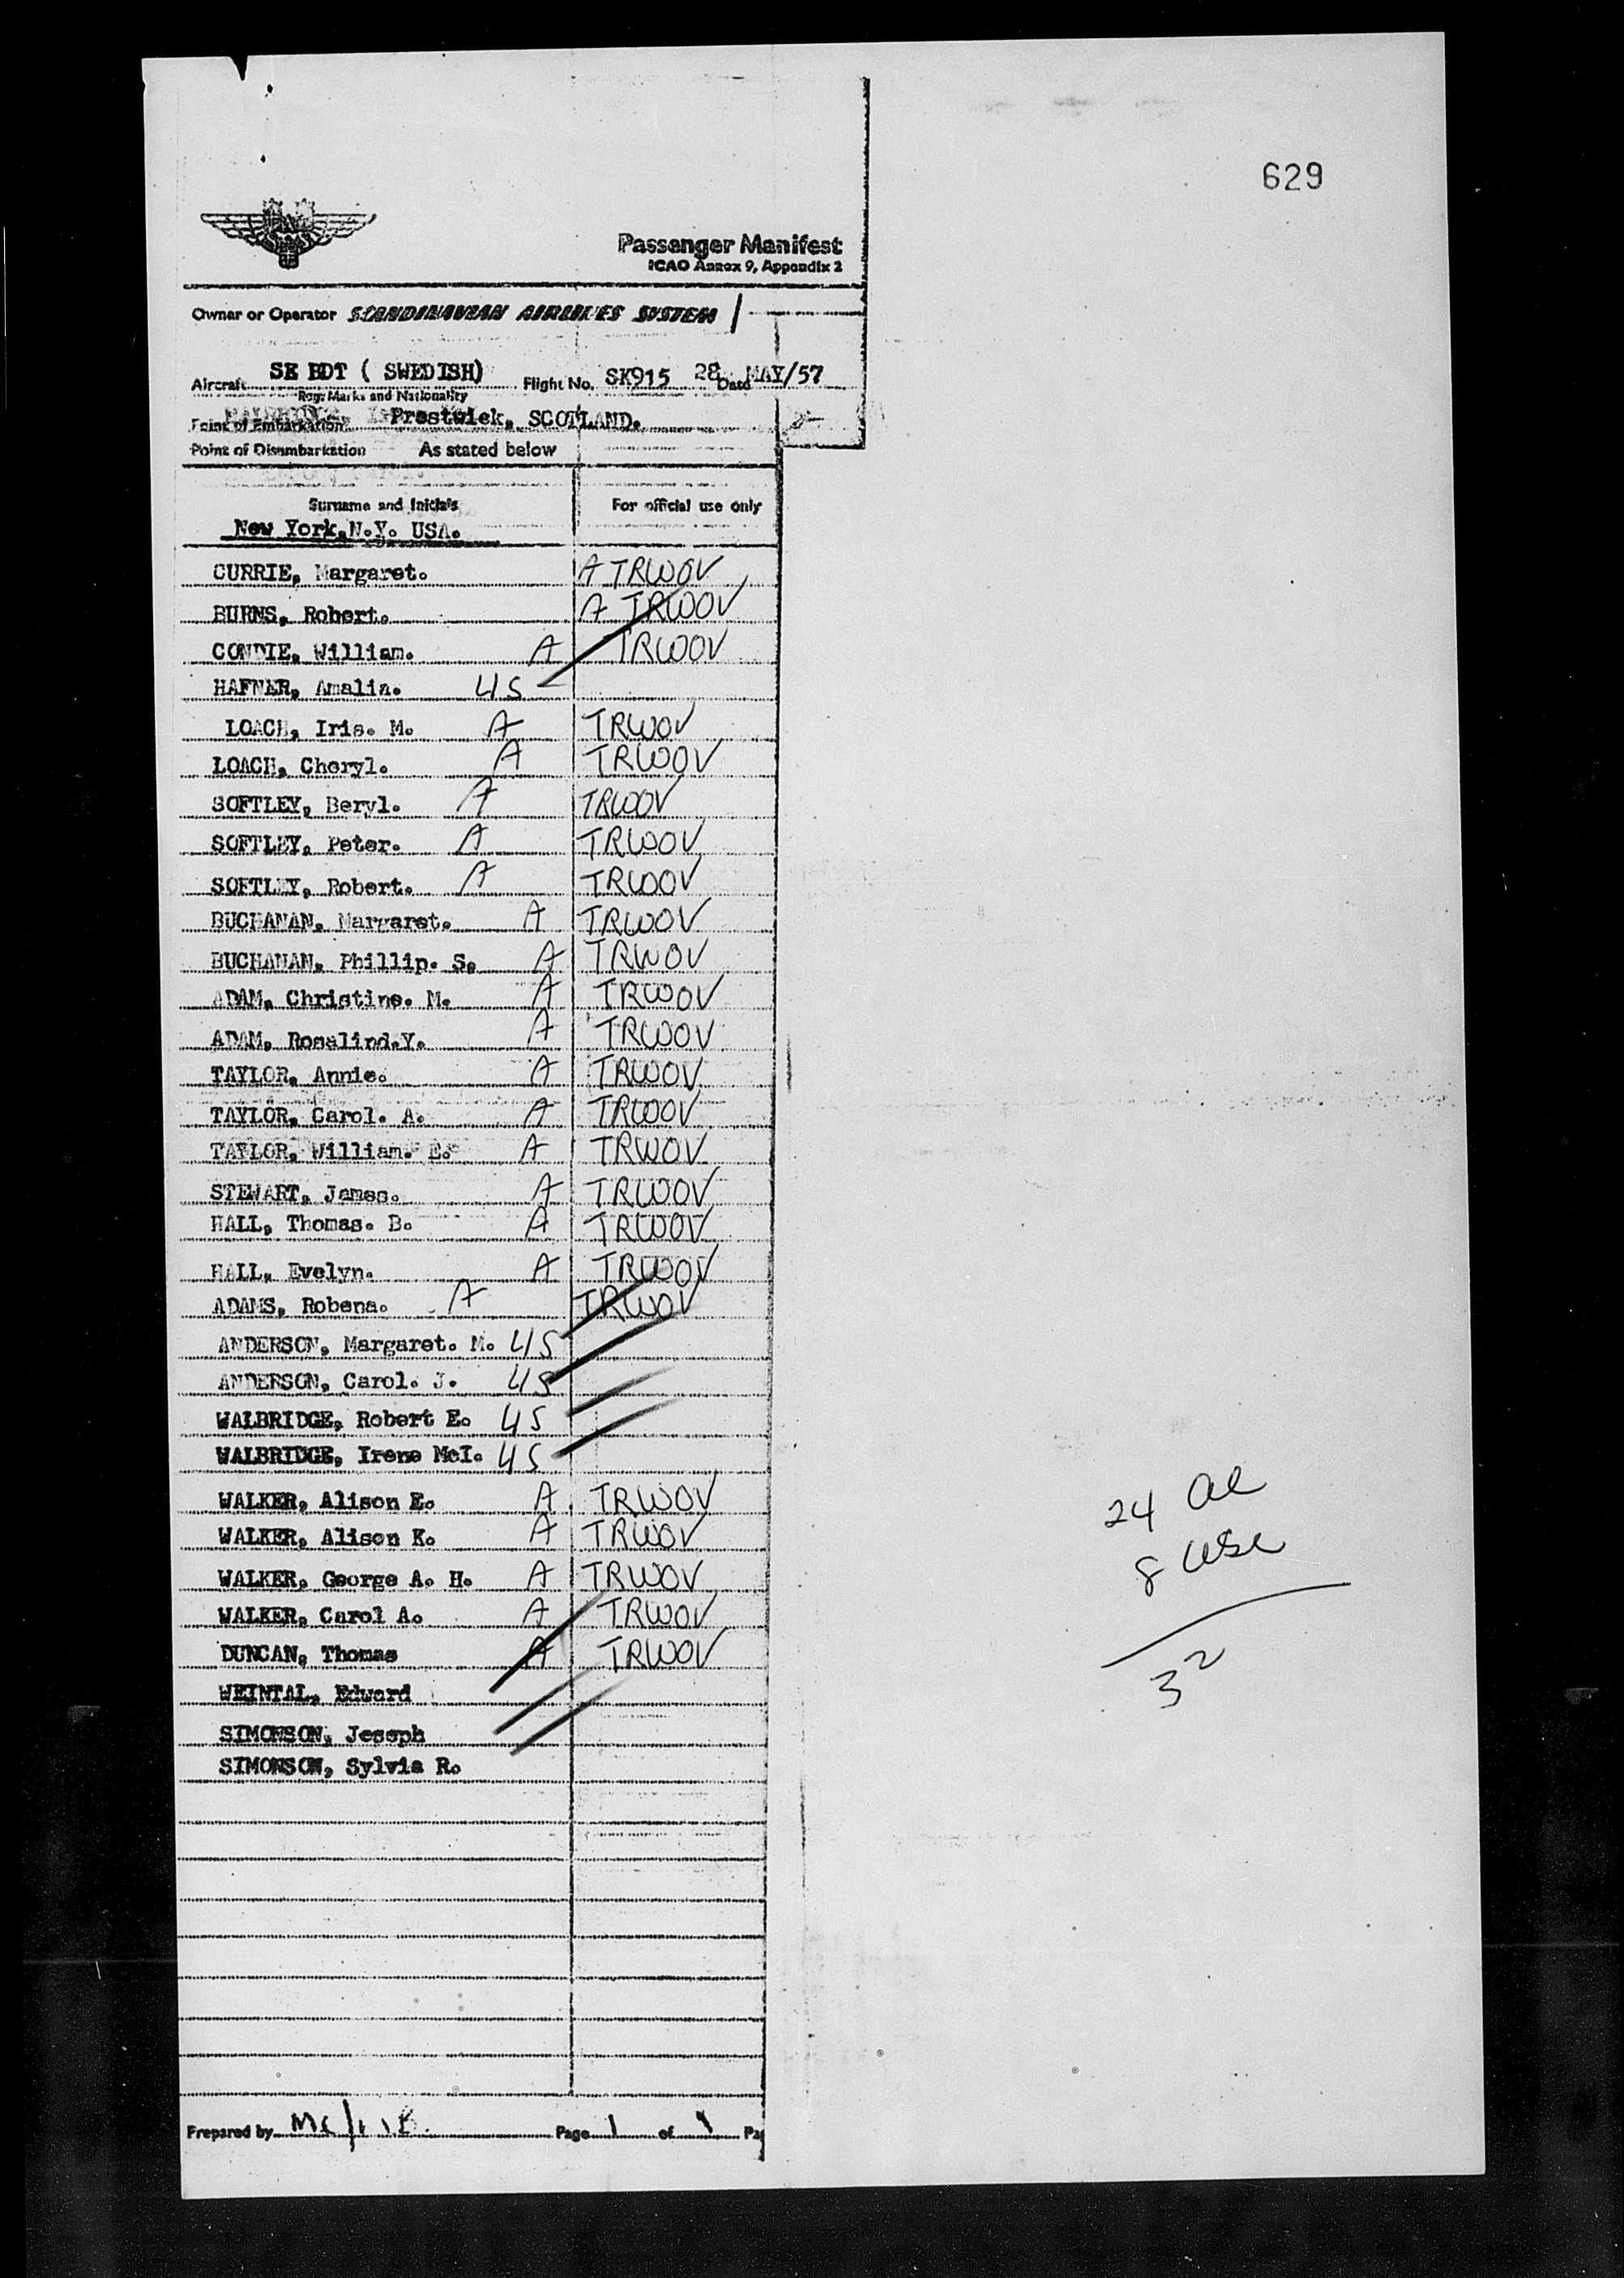 629
Passenger Manifest
ICAO Annex 9, Appendix 2
Owner or Operator SCANDINAVIAN AIRLINES SYSTEM
Aircraft SE BDT ( SWEDISH) Flight No. SK915 28 Date MAY/57
Reg. Marks and Nationality
Point of Embarkation Prestwick, SCOTLAND.
Point of Disembarkation As stated below
Surname and Initials For official use only
New York,N.Y. USA.
CURRIE, Margaret. A TRWOV
BURNS, Robert. A TRWOV
CONDIE, William. A TRWOV
HAFNER, Amalia. US
LOACH, Iris. M. A TRWOV
LOACH, Cheryl. A TRWOV
SOFTLEY, Beryl. A TRWOV
SOFTLEY, Peter. A TRWOV
SOFTLEY, Robert. A TRWOV
BUCHANAN, Margaret. A TRWOV
BUCHANAN, Phillip. S. A TRWOV
ADAM, Christine. M. A TRWOV
ADAM, Rosalind.Y. A TRWOV
TAYLOR, Annie. A TRWOV
TAYLOR, Carol. A. A TRWOV
TAYLOR, William. E. A TRWOV
STEWART, James. A TRWOV
HALL, Thomas. B. A TRWOV
HALL, Evelyn. A TRWOV
ADAMS, Robena. A TRWOV
ANDERSON, Margaret. M. US
ANDERSON, Carol. J. US
WALBRIDGE, Robert E. US
WALBRIDGE, Irene McI. US
WALKER, Alison E. A TRWOV
WALKER, Alison K. A TRWOV
WALKER, George A. H. A TRWOV
WALKER, Carol A. A TRWOV
DUNCAN, Thomas A TRWOV
WEINTAL, Edward
SIMONSON, Joseph
SIMONSON, Sylvia R.
24 al
8 usc
32
Prepared by Page 1 of 1 Pa